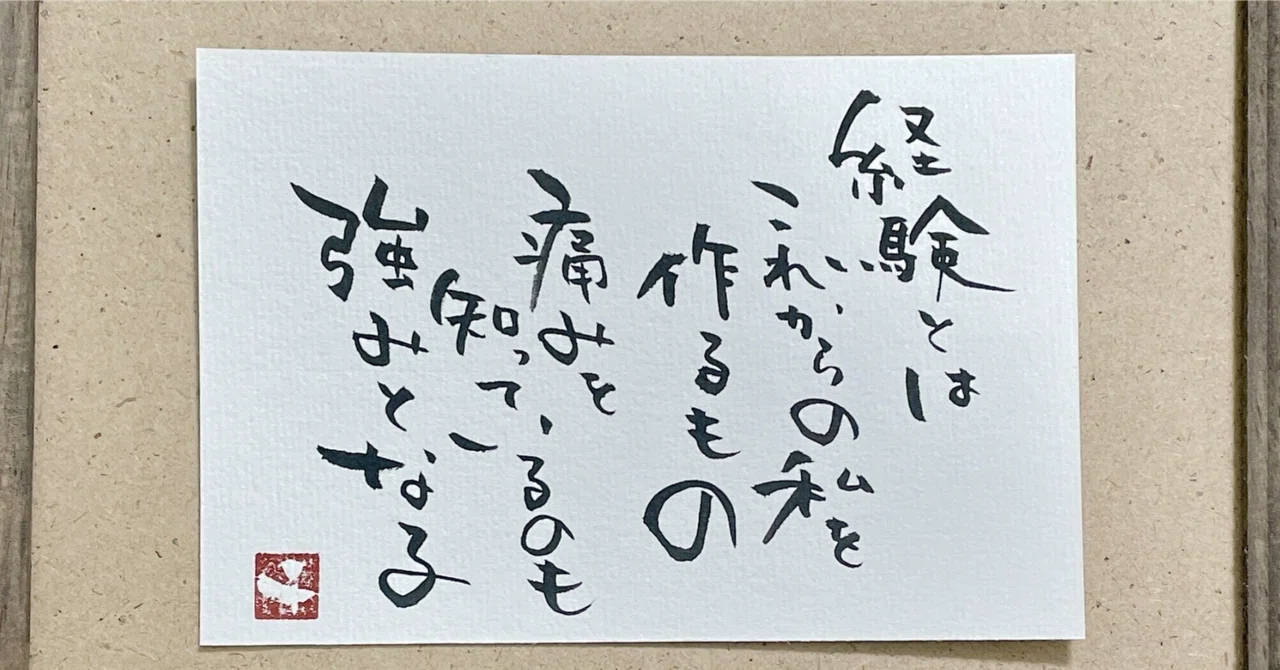 経験とは
これからの私を
作るもの
痛みを
知っているのも
強みとなる